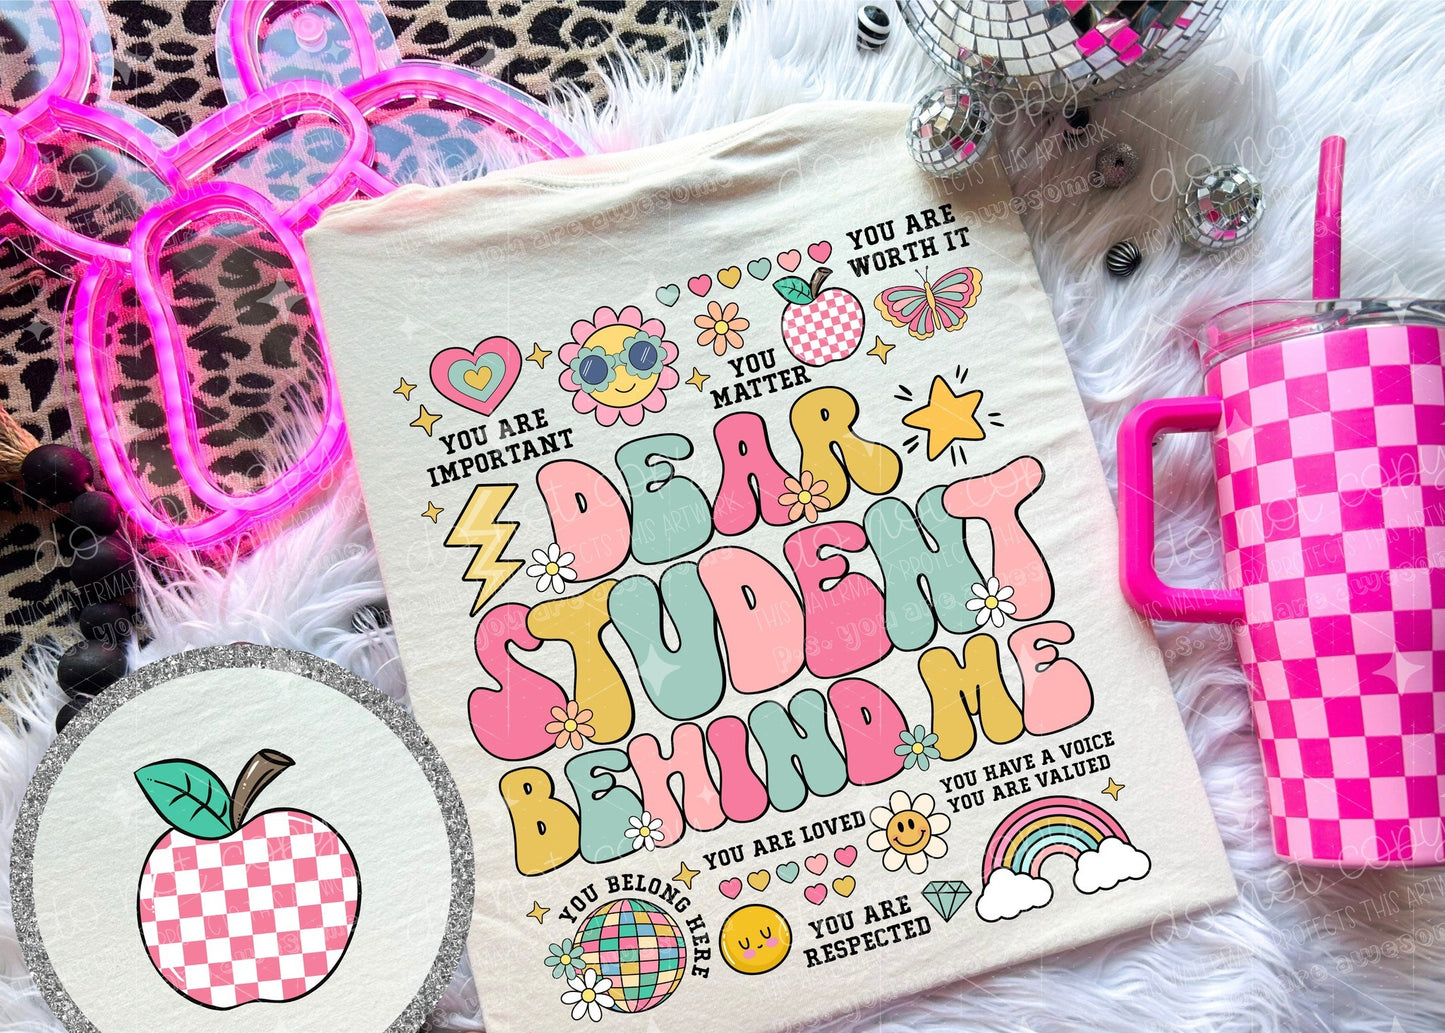 YOU ARE
WORTH IT
YOU
MATTER
YOU ARE
IMPORTANT
DEAR
STUDENT
BEHIND ME
YOU HAVE A VOICE
YOU ARE VALUED
YOU ARE LOVED
YOU BELONG HERE
YOU ARE
RESPECTED
do not copy
THIS WATERMARK PROTECTS THIS ARTWORK
p.s. you are awesome